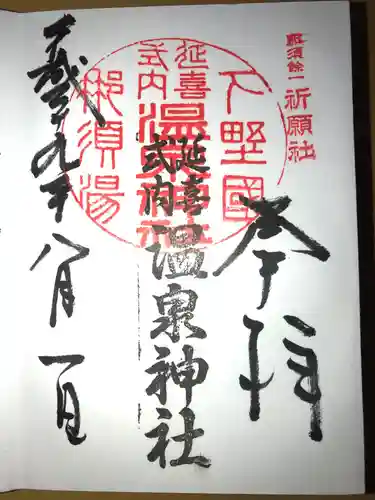 那須餘一
祈願社
奉拝
下野國
延喜
式内
温泉神社
那須湯
延喜
式内
温泉神社
平成二九年八月一日